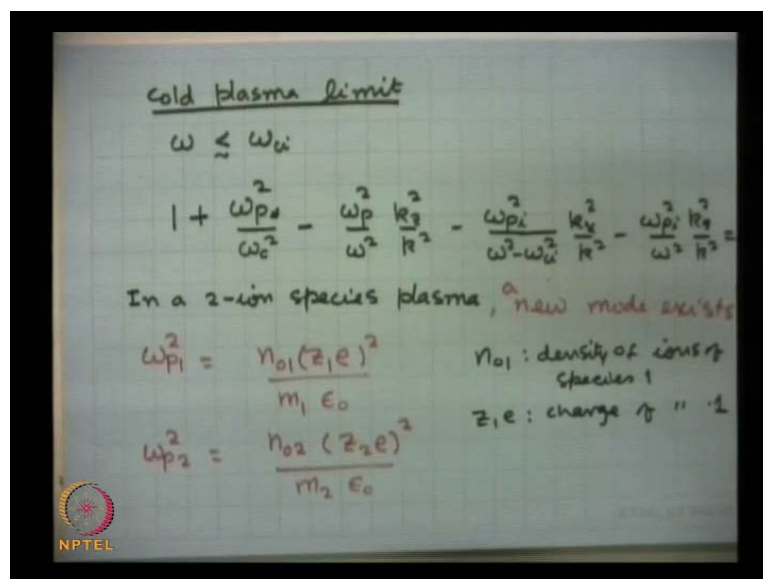 cold plasma limit
ω ≲ ωci
1 + ωp²/ωc² - ωp²/ω² kz²/k² - ωpi²/(ω²-ωci²) kx²/k² - ωpi²/ω² kz²/k² =
In a 2-ion species plasma, a new mode exists
ωp1² = n01(z1e)²/(m1 ε0)
n01 : density of ions of species 1
z1e : charge of " 1
ωp2² = n02 (z2e)²/(m2 ε0)
NPTEL